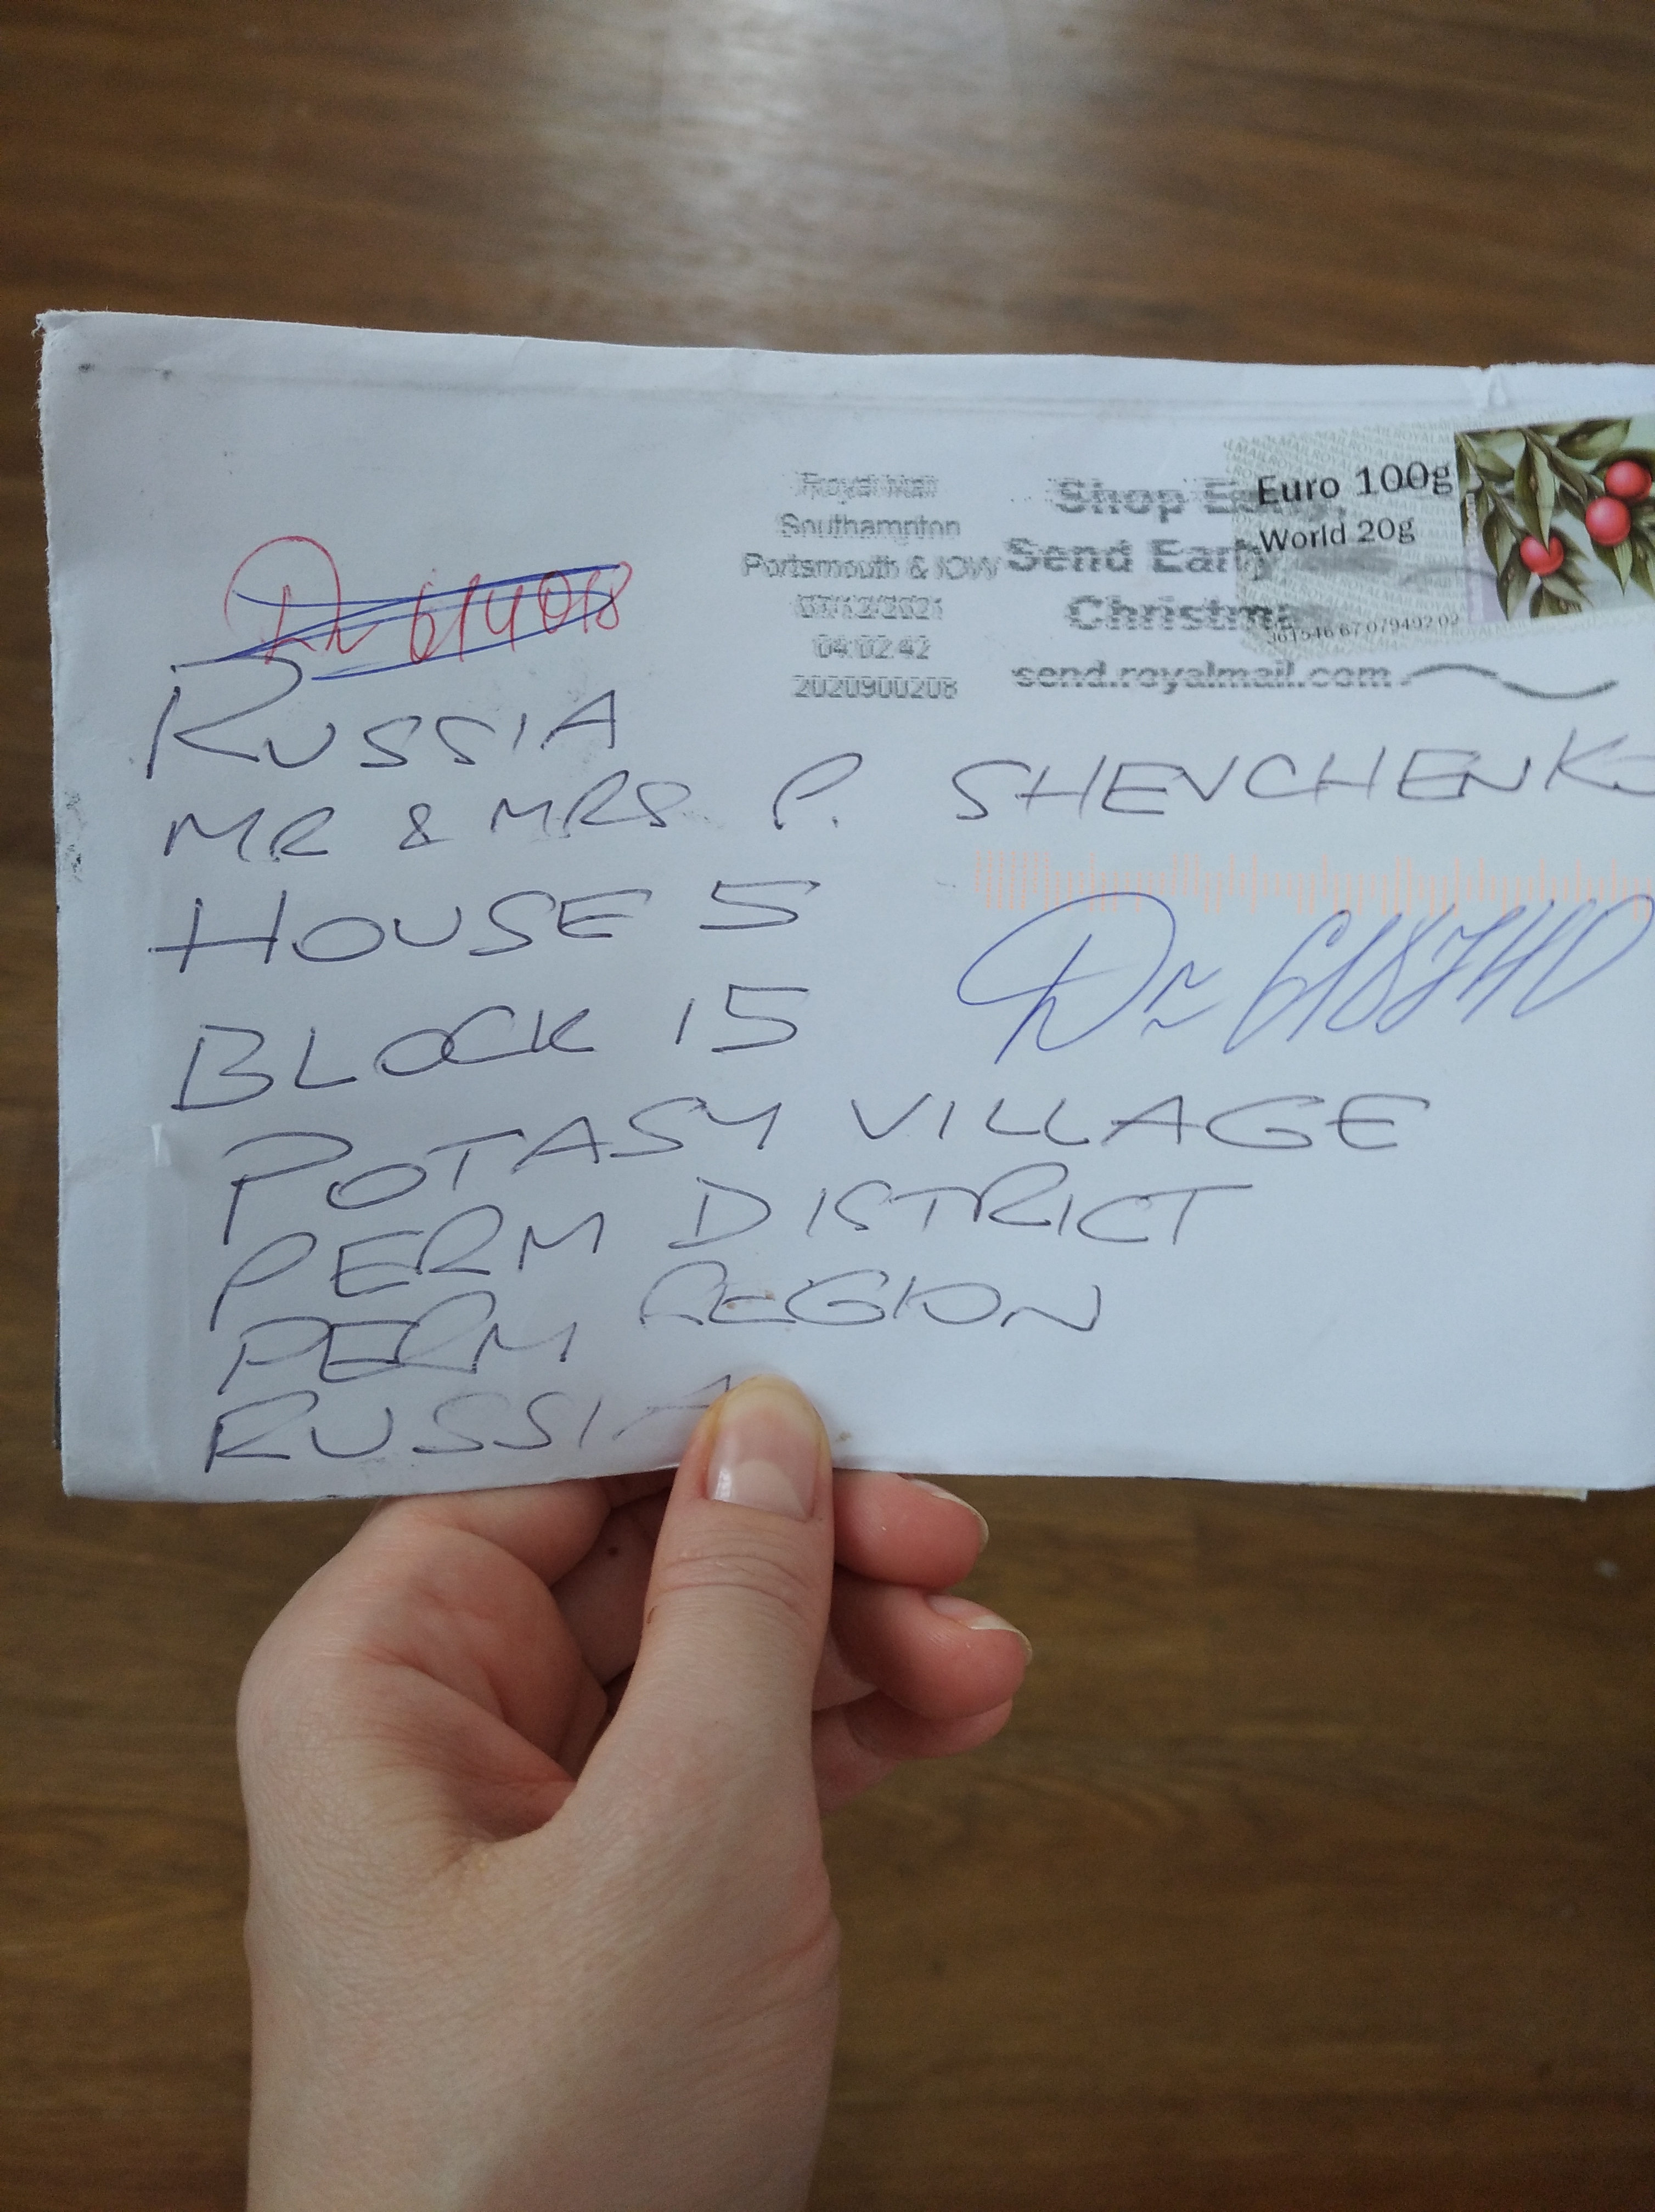 Royal Mail
Southampton
Portsmouth & IOW
07/12/2021
04:02:42
2020900208
Shop Early,
Send Early
Christmas
send.royalmail.com
Euro 100g
World 20g
614018
RUSSIA
MR & MRS P. SHEVCHENKO
HOUSE 5
BLOCK 15
618740
POTASY VILLAGE
PERM DISTRICT
PERM REGION
RUSSIA